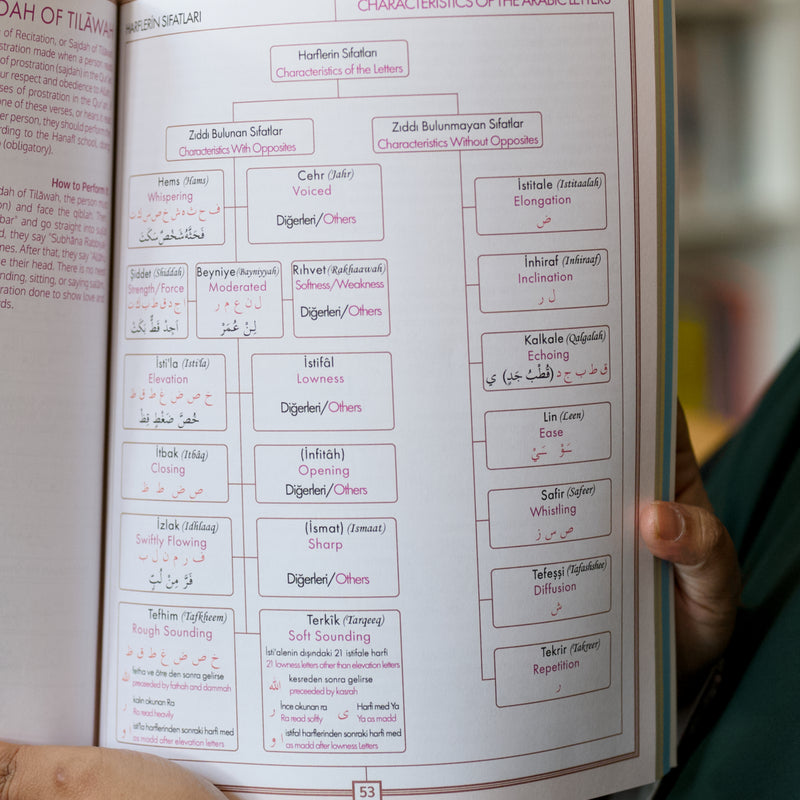 DAH OF TILĀWAH
of Recitation, or Sajdah of Tilāwah
prostration made when a person
of prostration (sajdah) in the Qur'an
our respect and obedience to Allah
of prostration in the Qur'an
one of these verses, or hears it
person, they should perform the
according to the Hanafi school, doing
(obligatory).
How to Perform
dah of Tilāwah, the person must
and face the qiblah. Then
and go straight into
they say "Subhāna Rabbiyal
times. After that, they say "Allāhu
their head. There is no need
standing, sitting, or saying salām.
done to show love and
HARFLERİN SIFATLARI
CHARACTERISTICS OF THE ARABIC LETTERS
Harflerin Sıfatları
Characteristics of the Letters
Zıddı Bulunan Sıfatlar
Characteristics With Opposites
Zıddı Bulunmayan Sıfatlar
Characteristics Without Opposites
Hems (Hams)
Whispering
ف ح ث ه ش خ ص س ك ت
فَحَثَّهُ شَخْصٌ سَكَتَ
Cehr (Jahr)
Voiced
Diğerleri/Others
Şiddet (Shiddah)
Strength/Force
ا ج د ق ط ب ك ت
اَجِدُ قَطٍّ بَكَتْ
Beyniye (Bayniyyah)
Moderated
ل ن ع م ر
لِنْ عُمَرْ
Rıhvet (Rakhaawah)
Softness/Weakness
Diğerleri/Others
İsti'la (Isti'la)
Elevation
خ ص ض غ ط ق ظ
خُصَّ ضَغْطٍ قِظْ
İstifâl
Lowness
Diğerleri/Others
İtbak (Itbâq)
Closing
ص ض ط ظ
(İnfitâh)
Opening
Diğerleri/Others
İzlak (Idhlaaq)
Swiftly Flowing
ف ر م ن ل ب
فَرَّ مِنْ لُبٍّ
(İsmat) (Ismaat)
Sharp
Diğerleri/Others
Tefhim (Tafkheem)
Rough Sounding
خ ص ض غ ط ق ظ
الله fetha ve ötre den sonra gelirse
preceeded by fathah and dammah
ر kalın okunan Ra
Ra read heavily
ا و isti'la harflerinden sonraki harfi med
as madd after elevation letters
Terkîk (Tarqeeq)
Soft Sounding
İsti'alenin dışındaki 21 istifale harfi
21 lowness letters other than elevation letters
الله kesreden sonra gelirse
preceeded by kasrah
ر İnce okunan ra
Ra read softly
ى Harfi med Ya
Ya as madd
ا و istifal harflerinden sonraki harfi med
as madd after lowness Letters
İstitale (Istitaalah)
Elongation
ض
İnhiraf (Inhiraaf)
Inclination
ل ر
Kalkale (Qalqalah)
Echoing
ق ط ب ج د (قُطْبُ جَدٍ) ي
Lin (Leen)
Ease
سَوْ سَيْ
Safir (Safeer)
Whistling
ص س ز
Tefeşşi (Tafashshee)
Diffusion
ش
Tekrir (Takreer)
Repetition
ر
53